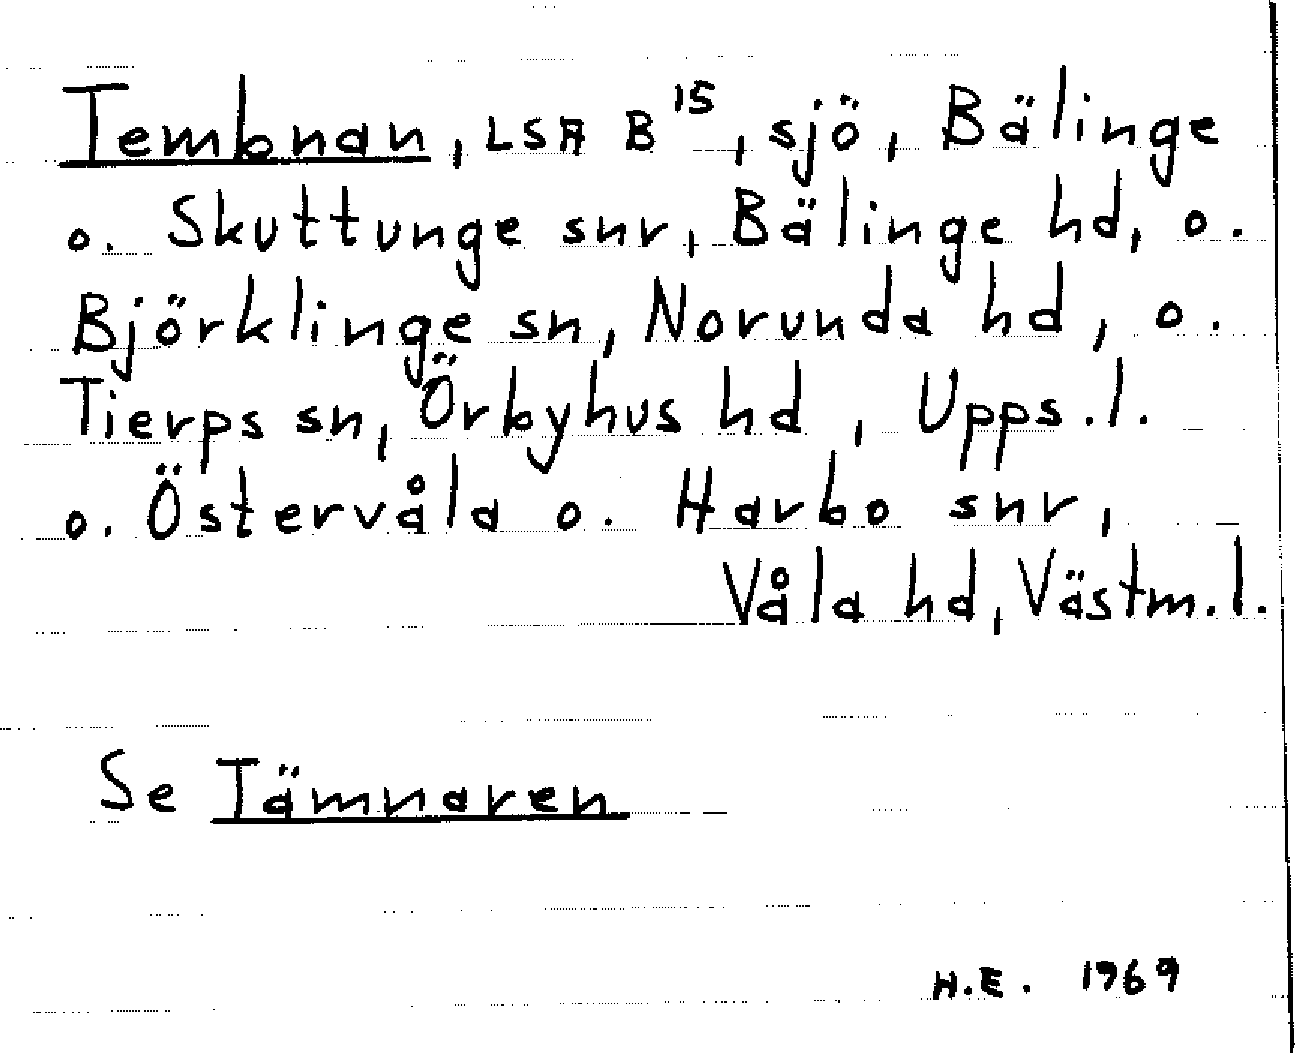 Tembnan, LSA B 15, sjö, Bälinge
o. Skuttunge snr, Bälinge hd, o.
Björklinge sn, Norunda hd, o.
Tierps sn, Örbyhus hd, Upps.l.
o. Östervåla o. Harbo snr,
Våla hd, Västm.l.
Se Tämnaren
H.E. 1969